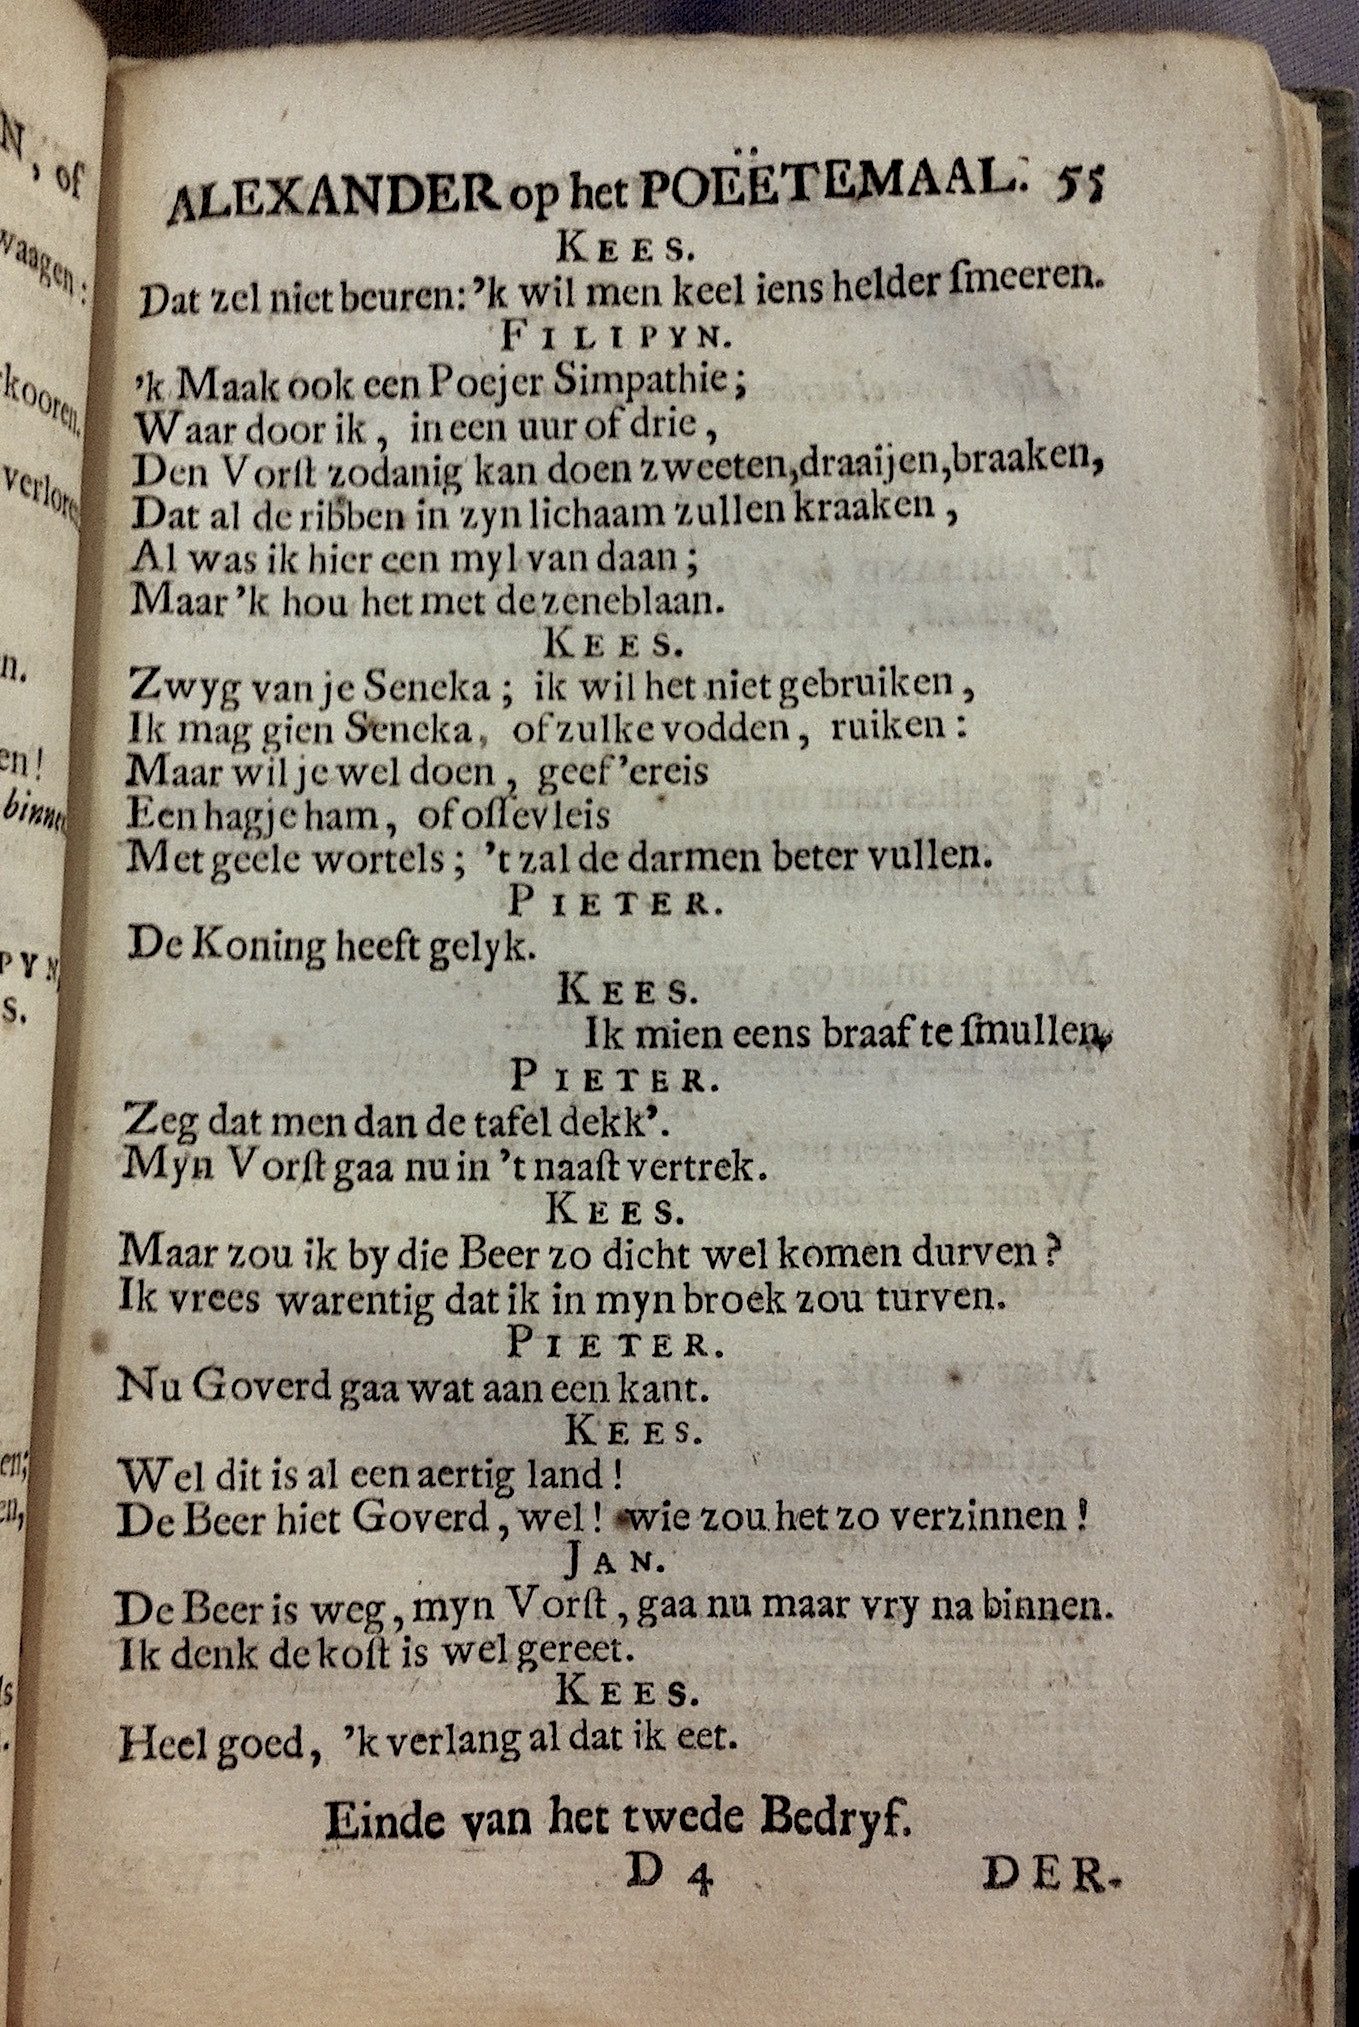 ALEXANDER op het POEËTEMAAL. 55
KEES.
Dat zel niet beuren: 'k wil men keel iens helder ſmeeren.
FILIPYN.
'k Maak ook een Poejer Simpathie;
Waar door ik, in een uur of drie,
Den Vorſt zodanig kan doen zweeten, draaijen, braaken,
Dat al de ribben in zyn lichaam zullen kraaken,
Al was ik hier een myl van daan;
Maar 'k hou het met de zeneblaan.
KEES.
Zwyg van je Seneka; ik wil het niet gebruiken,
Ik mag gien Seneka, of zulke vodden, ruiken:
Maar wil je wel doen, geef 'ereis
Een hagje ham, of oſſevleis
Met geele wortels; 't zal de darmen beter vullen.
PIETER.
De Koning heeft gelyk.
KEES.
Ik mien eens braaf te ſmullen.
PIETER.
Zeg dat men dan de tafel dekk'.
Myn Vorſt gaa nu in 't naaſt vertrek.
KEES.
Maar zou ik by die Beer zo dicht wel komen durven?
Ik vrees warentig dat ik in myn broek zou turven.
PIETER.
Nu Goverd gaa wat aan een kant.
KEES.
Wel dit is al een aertig land!
De Beer hiet Goverd, wel! wie zou het zo verzinnen!
JAN.
De Beer is weg, myn Vorſt, gaa nu maar vry na binnen.
Ik denk de koſt is wel gereet.
KEES.
Heel goed, 'k verlang al dat ik eet.
Einde van het twede Bedryf.
D 4 DER.